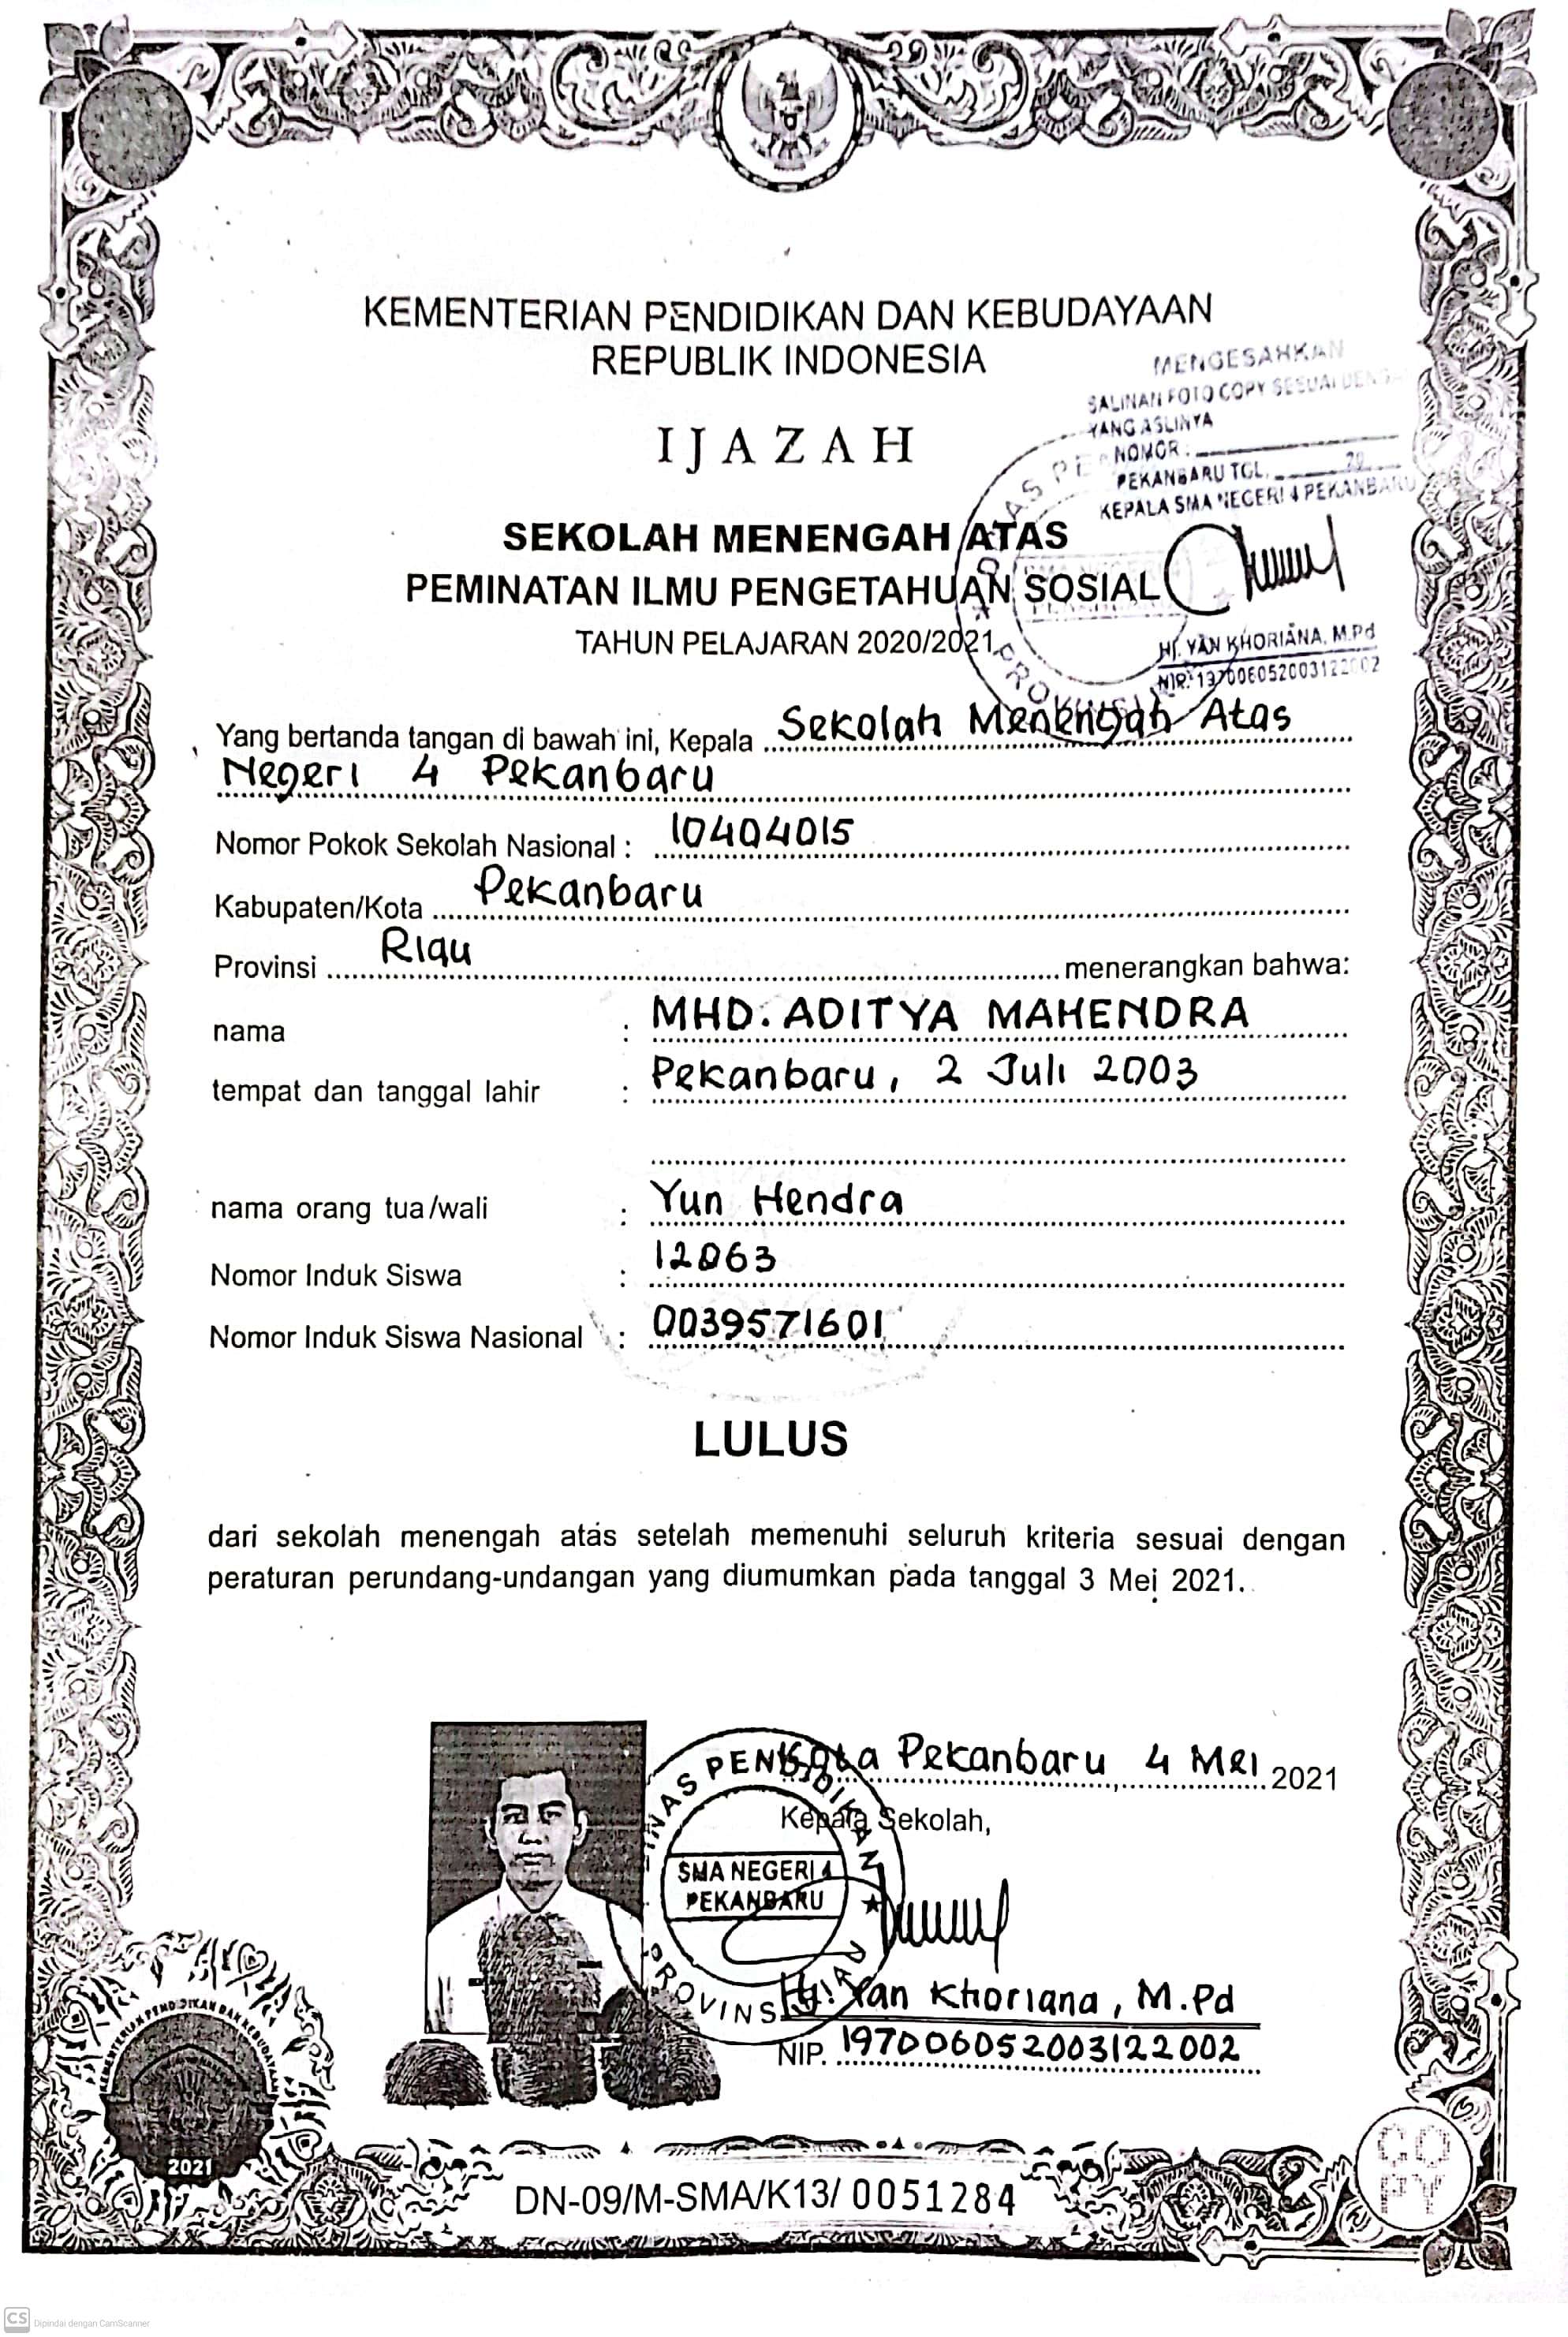 KEMENTERIAN PENDIDIKAN DAN KEBUDAYAAN
REPUBLIK INDONESIA
IJAZAH
MENGESAHKAN
SALINAN FOTO COPY SESUAI DENGA
YANG ASLINYA
NOMOR :
PEKANBARU TGL. 20
KEPALA SMA NEGERI 4 PEKANBARU
SEKOLAH MENENGAH ATAS
PEMINATAN ILMU PENGETAHUAN SOSIAL
TAHUN PELAJARAN 2020/2021
Hj. YAN KHORIANA, M.Pd
NIP. 197006052003122002
Yang bertanda tangan di bawah ini, Kepala Sekolah Menengah Atas
Negeri 4 Pekanbaru
Nomor Pokok Sekolah Nasional : 10404015
Kabupaten/Kota Pekanbaru
Provinsi Riau menerangkan bahwa:
nama : MHD. ADITYA MAHENDRA
tempat dan tanggal lahir : Pekanbaru, 2 Juli 2003
nama orang tua/wali : Yun Hendra
Nomor Induk Siswa : 12063
Nomor Induk Siswa Nasional : 0039571601
LULUS
dari sekolah menengah atas setelah memenuhi seluruh kriteria sesuai dengan
peraturan perundang-undangan yang diumumkan pada tanggal 3 Mei 2021.
Kota Pekanbaru, 4 Mei 2021
Kepala Sekolah,
DINAS PENDIDIKAN
SMA NEGERI 4
PEKANBARU
PROVINSI RIAU
Hj. Yan Khoriana, M.Pd
NIP. 197006052003122002
KEMENTERIAN PENDIDIKAN DAN KEBUDAYAAN
2021
DN-09/M-SMA/K13/ 0051284
COPY
CS Dipindai dengan CamScanner